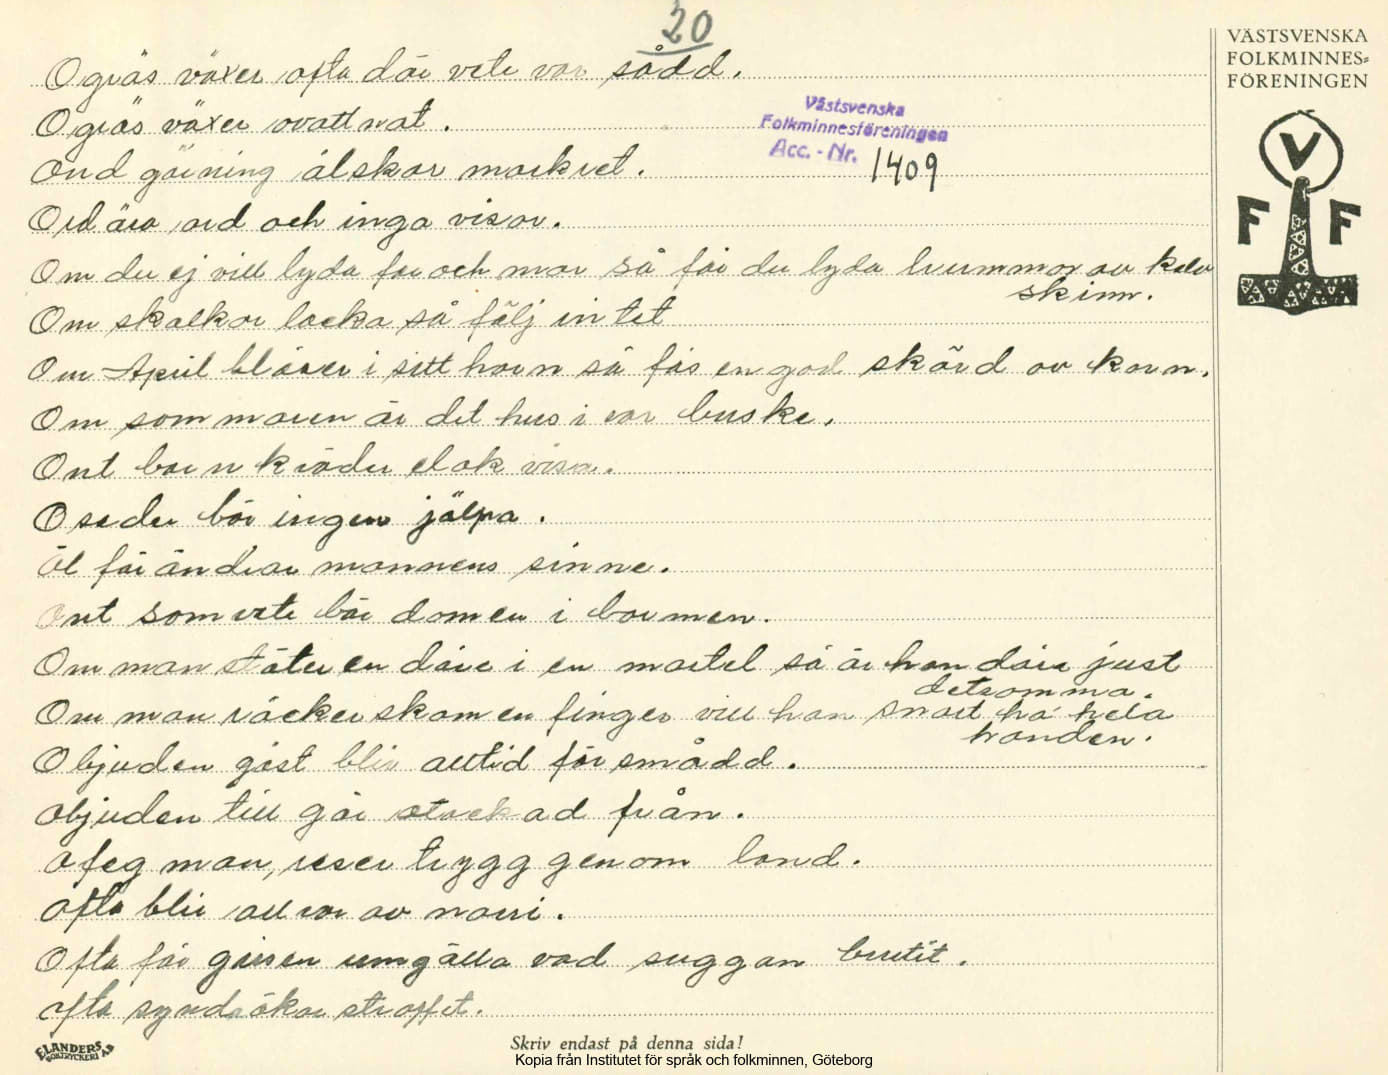 20
VÄSTSVENSKA
FOLKMINNES=
FÖRENINGEN
Ogräs växer ofta där vete var sådd.
Ogräs växer ovattnat.
Västsvenska
Folkminnesföreningen
Acc. - Nr. 1409
Ond gärning älskar mörkret.
Ord äro ord och inga visor.
Om du ej vill lyda far och mor så får du lyda trummor av kalv
skinn.
Om skalkar locka så följ intet
Om April blåser i sitt horn så fås en god skörd av korn.
Om sommaren är det hus i var buske.
Ont barn kräder elak visa.
Oseder bör ingen jälpa.
Öl förändrar mannens sinne.
Ont samvete bär domen i barmen.
Om man stöter en dåre i en mortel så är han dåre just
detsamma.
Om man räcker skam en finger vill han snart ha hela
handen.
Objuden gäst blir alltid försmådd.
objuden till går otackad från.
ofeg man, reser trygg genom land.
ofta blir allvar av narri.
Ofta får grisen umgälla vad suggan brutit.
ofta synd söker straffet.
V
F F
ELANDERS
BOKTRYCKERI AB
Skriv endast på denna sida!
Kopia från Institutet för språk och folkminnen, Göteborg